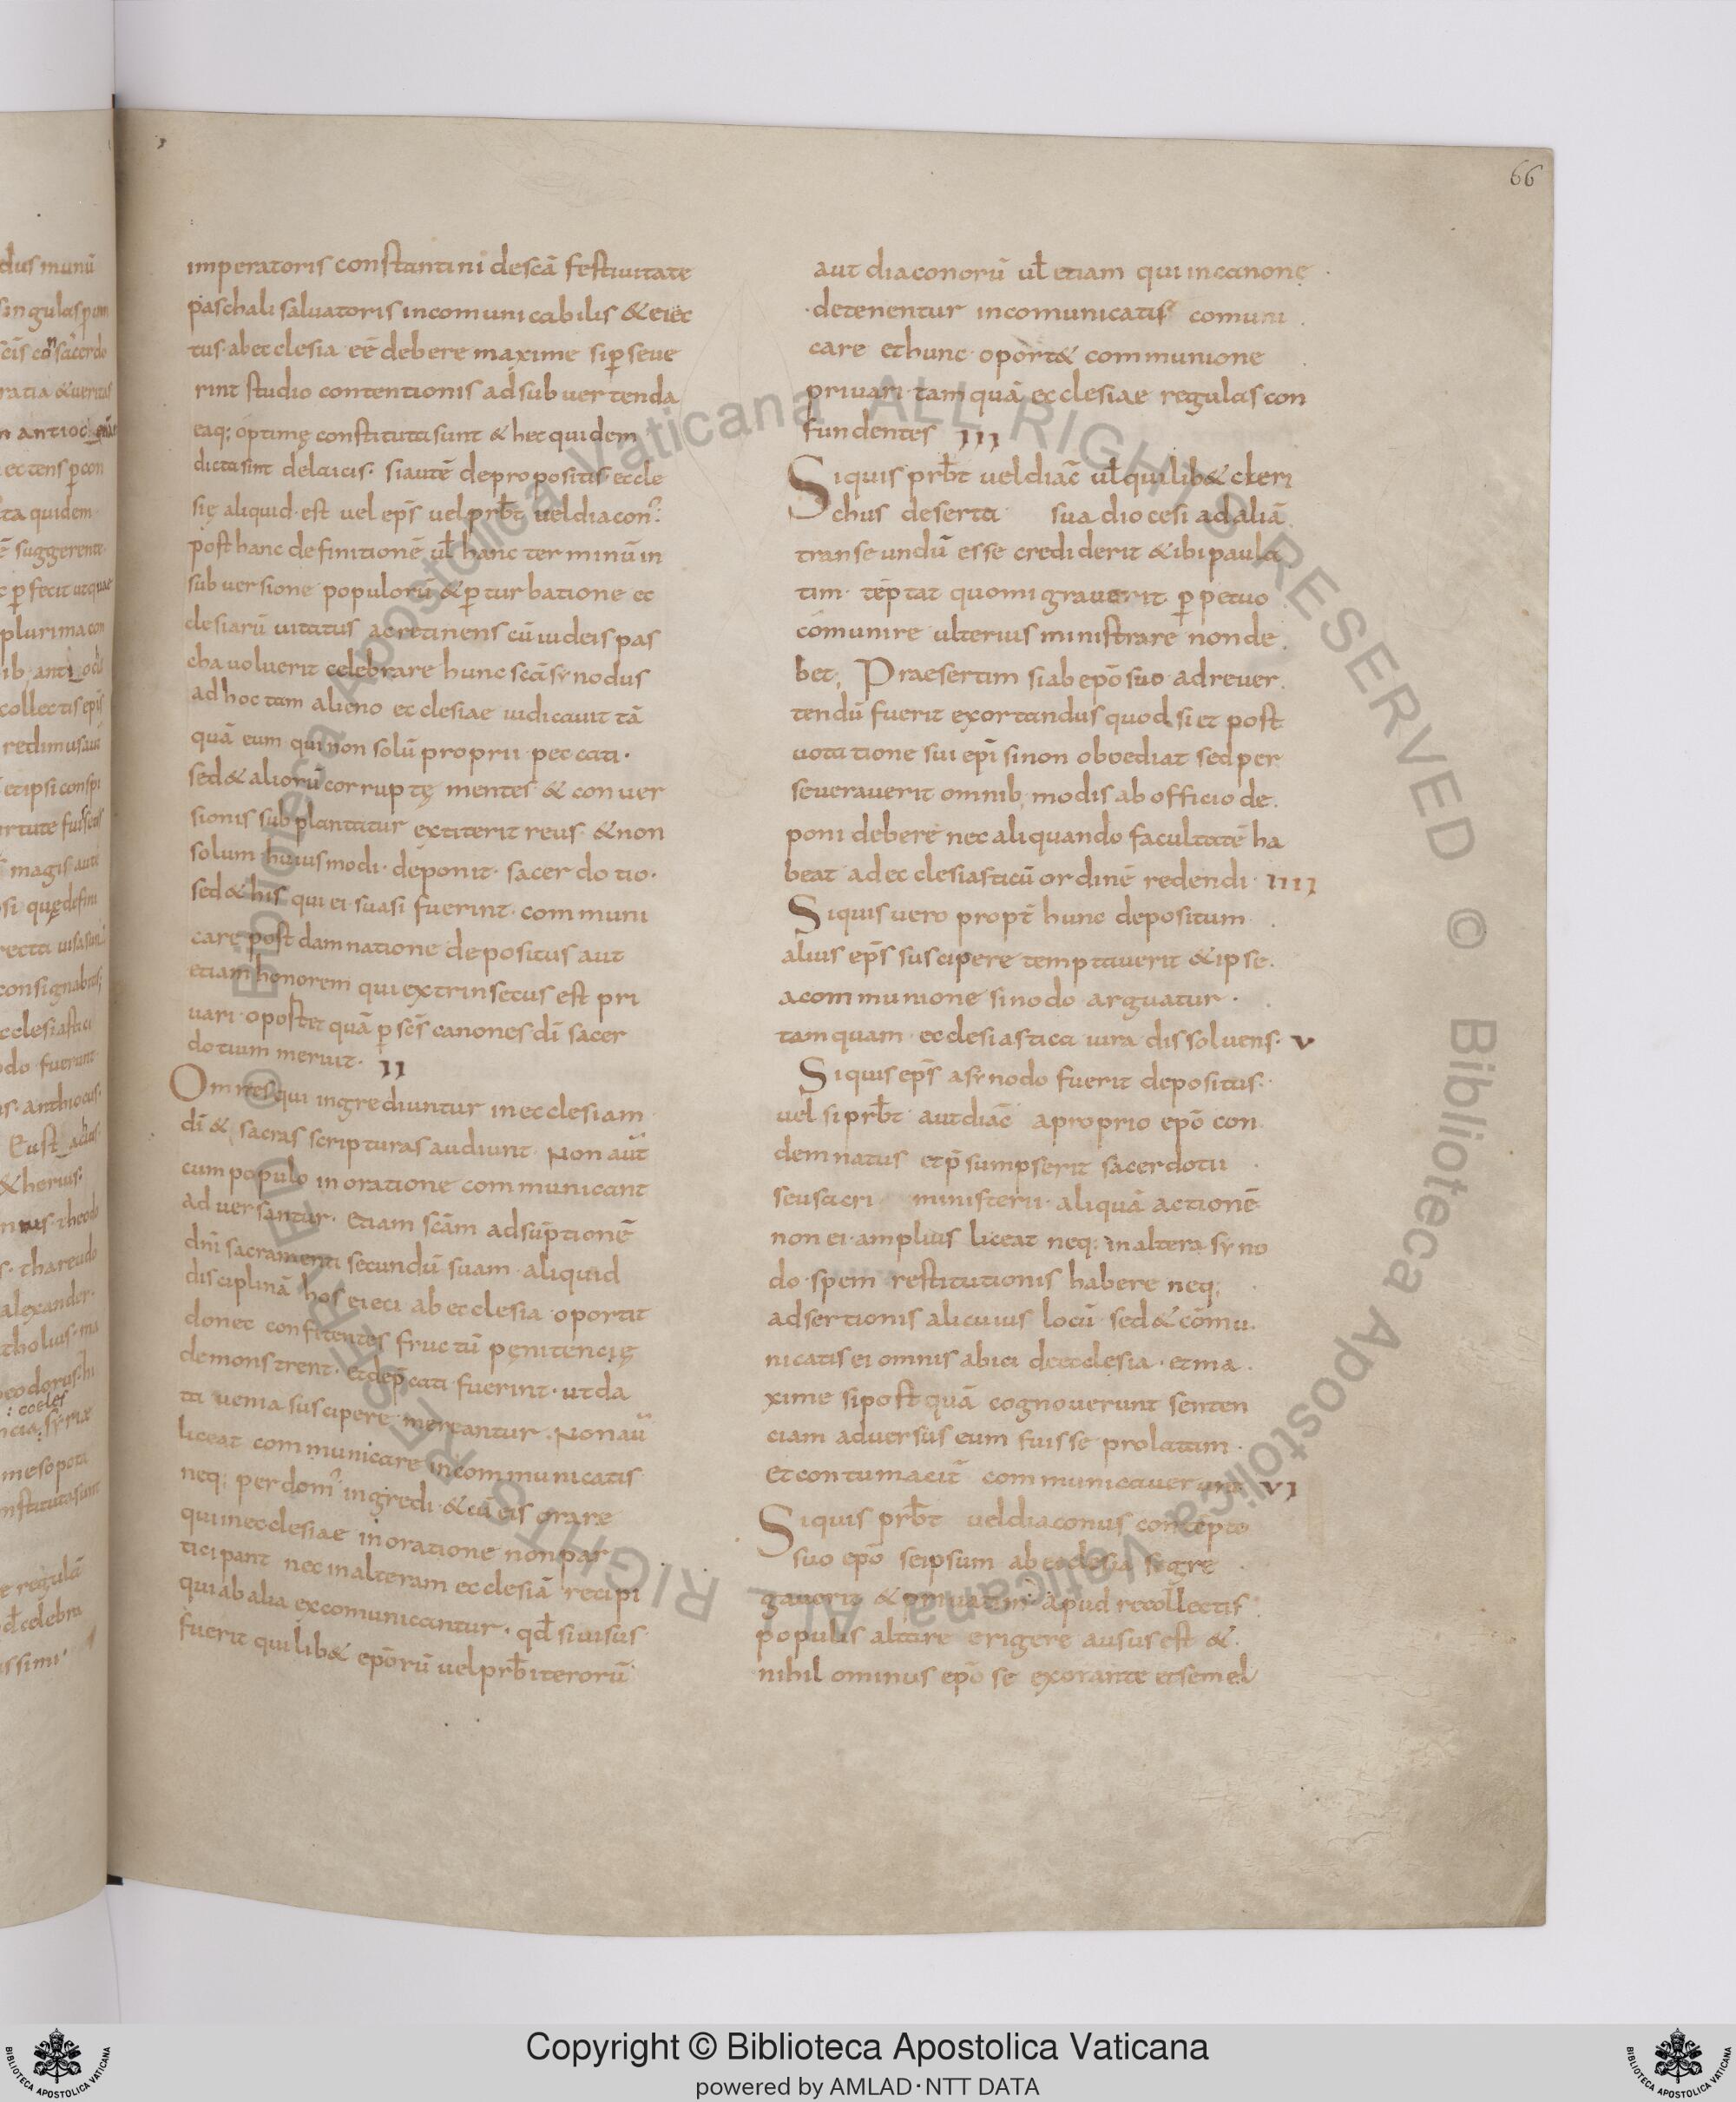 66
imperatoris constantini descā festiuitate
paschali saluatoris incomunicabilis & eiec
tus ab ecclesia eē debere maxime si ꝑseue
rint studio contentionis ad subuertenda
eaq; optimę constituta sunt & hec quidem
dicta sint de laicis· si autē depropositis eccle
się aliquid est uel ep̄s uel prb̄t uel diacon᾿
post hanc definitionē ul̄ hanc terminū in
subuersione populorū & ꝑturbatione ec
clesiarū uitatus ac retinens cū iudeis pas
cha uoluerit celebrare hunc scā synodus
ad hoc tam alieno ecclesiae iudicauit tā
quā eum qui non solū proprii peccati·
sed & aliorū corruptę mentes & conuer
sionis subplantatur extiterit reus & non
solum huiusmodi· deponit· sacerdotio·
sed & his qui ei suasi fuerint· communi
care post damnatione depositus aut
etiam honorem qui extrinsecus est pri
uari· opostet quā ꝑ scs̄ canones dī sacer
dotium meruit· II
Omnes qui ingrediuntur in ecclesiam
dī & sacras scripturas audiunt Non aūt
cum populo in oratione communicant
aduersantur· etiam scām adsūptionē
dnī sacramenti secundū suam aliquid
disciplinā hos eieci ab ecclesia oportit
donec confitentes fructū pęnitencię
demonstrent· et dep̄cati fuerint· ut da
ta uenia suscipere mereantur· Non aū
liceat communicare incommunicatis
neq; per dom᾿ ingredi· & cū eis orare
qui in ecclesiae in oratione non par
ticipant nec in alteram ecclesiā recipi
qui ab alia excomunicantur· qd̄ si uisus
fuerit quilib& epōrū uel prb̄iterorū
aut diaconorū ul̄ etiam qui in canone
detenentur incomunicatis comuni
care et hunc oport& communione
priuari· tamquā ecclesiae regulas con
fundentes III
Siquis prb̄t uel diac̄ ul̄ quilib& cleri
chus deserta sua diocesi ad aliā
transeundū esse crediderit & ibi paula
tim tēptat quo migrauerit ꝑpetuo
cōmunire ulterius ministrare non de
bet; Praesertim si ab epō suo ad reuer
tendū fuerit exortandus quod si et post
uotatione sui epī si non oboediat sed per
seuerauerit omnib; modis ab officio de
poni debere nec aliquando facultatē ha
beat ad ecclesiasticū ordinē redendi· IIII
Siquis uero propt̄ hunc depositum
alius ep̄s suscipere temptauerit & ipse
acommunione sinodo arguatur·
tamquam ecclesiastica iura dissoluens· V
Siquis ep̄s asynodo fuerit depositus·
uel si prb̄t aut diac̄ aproprio epō con
demnatus et p̄sumpserit sacerdotii
seu sacri ministerii· aliquā actionē
non ei amplius liceat neq; in altera syno
do· spem restitutionis habere neq;
adsertionis alicuius locū sed & cōmu
nicatis ei omnis abici de ecclesia· et ma
xime si postquā cognouerunt senten
ciam aduersus eum fuisse prolatam·
et contumacit̄ communicauerunt VI
Siquis prb̄t uel diaconus contēpto
suo epō seipsum ab ecclesia segre
gauerit & priuatim apud recollectis
populis altare erigere ausus est &
nihil ominus epō se exorante et semel
Copyright © Biblioteca Apostolica Vaticana
powered by AMLAD·NTT DATA